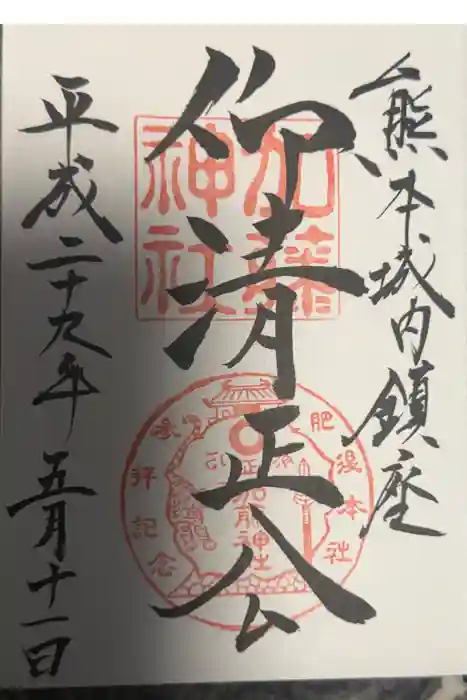 熊本城内鎮座
仰清正公
平成二十九年五月十一日
加藤
神社
肥後本社
参拝記念
加藤神社